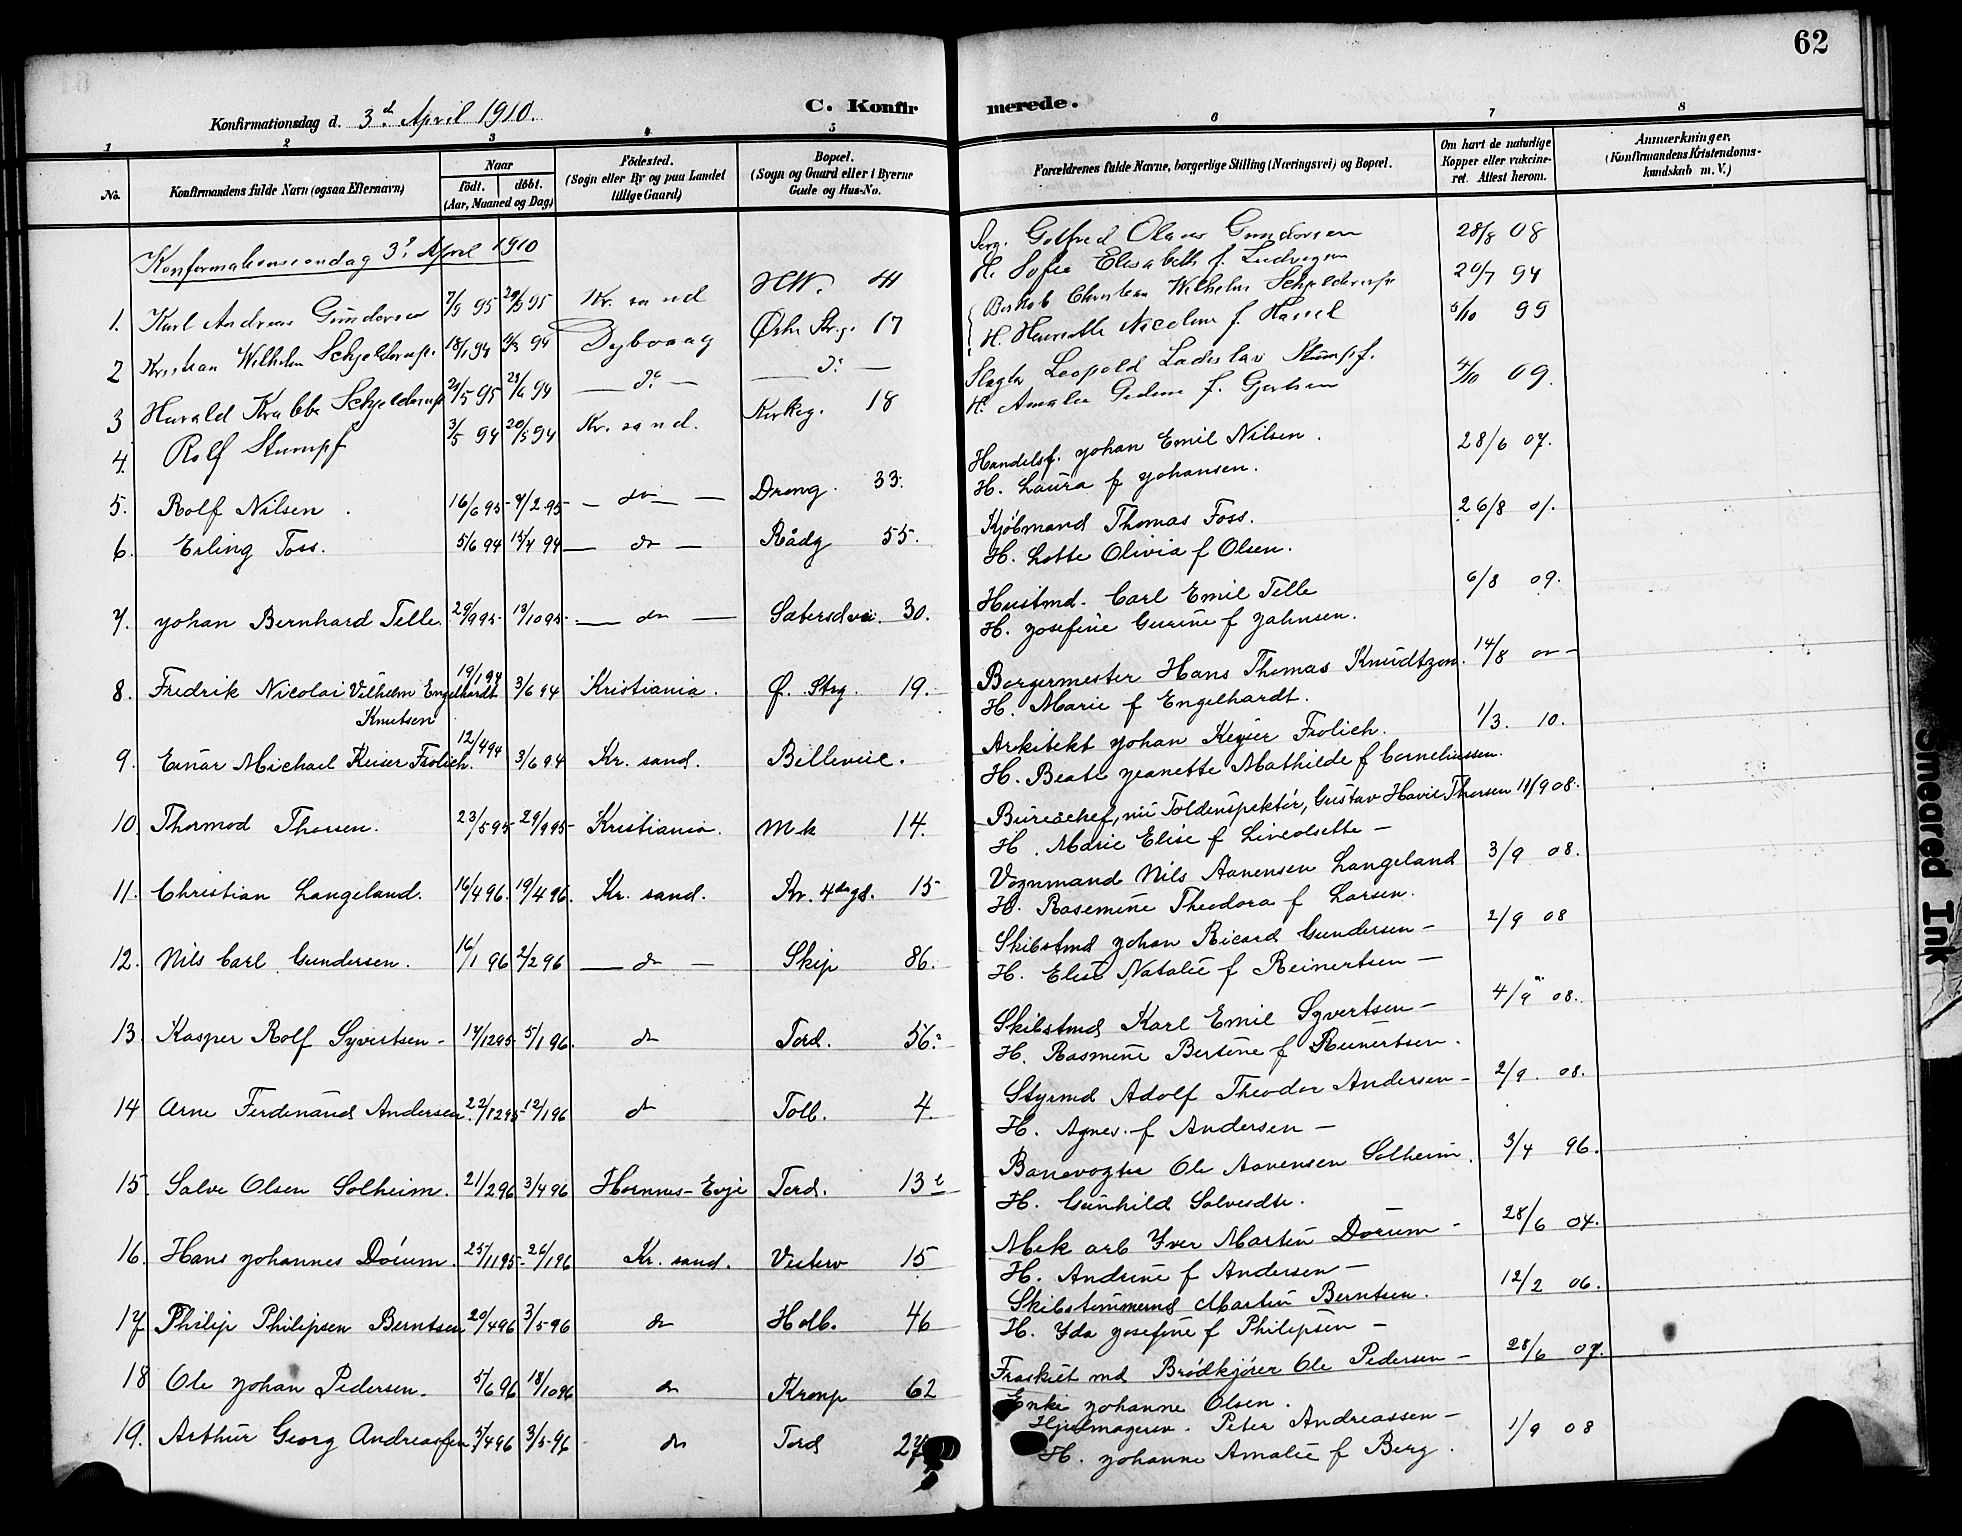 62
Konfirmationsdag d. 3d April 1910.
C. Konfirmerede.
1 2 3 4 5 6 7 8
No.
Konfirmandens fulde Navn (ogsaa Efternavn)
Naar
født. døbt.
(Aar, Maaned og Dag)
Fødested.
(Sogn eller By og paa Landet
tillige Gaard)
Bopæl.
(Sogn og Gaard eller i Byerne
Gade og Hus-No.
Forældrenes fulde Navne, borgerlige Stilling (Næringsvei) og Bopæl.
Om havt de naturlige
Kopper eller vakcine-
ret. Attest herom.
Anmærkninger,
(Konfirmandens Kristendoms-
kundskab m. V.)
Konfirmationssøndag 3d April 1910
1. Karl Andreas Gundersen 95 95 Kr. sand H.W. 41 Gotfred Olaus Gundersen 28/8 08
H. Sofie Elisabeth f. Ludvigsen
2 Kristian Wilhelm Schjelderup. 18/1 94 94 Dybvaag Østr Str.g. 17 Christian Wilhelm Schjelderup 20/7 94
H. Henriette Nicoline f. Hassel
3 Harald Krabbe Schjelderup 21/5 95 94 — do — — do — 5/10 99
4. Rolf Stumpf 3/5 94 20/5 94 Kr. sand. Kirkeg. 18 Slagter Leopold Ladislav Stumpf. 4/10 09.
H. Amalie f. Gjertsen
5. Rolf Nilsen. 16/6 95 — do — Drong. 33. Handelsf. Johan Emil Nilsen. 28/6 07.
H. Laura f Johansen.
6. Erling Foss. 5/6 94 15/7 94 — do — Rådg 55. Kjøbmand Thomas Foss. 26/8 01.
H. Lotte Olivia f Olsen.
7. Johan Bernhard Telle. 29/9 95 13/10 95 — do — Sætersdvei. 30. Hustmd. Carl Emil Telle 6/8 09.
H. Josefine Gurine f Jahnsen.
8. Fredrik Nicolai Vilhelm Engelhardt 19/1 94 3/6 94 Kristiania. Ø. Strg. 19. Borgermester Hans Thomas Knudtzon. 14/8
Knutsen H. Marie f Engelhardt.
9. Einar Michael Keiser Frolich. 12/4 94 3/6 94 Kr. sand. Billeveie. Arkitekt Johan Keyser Frolich. 1/3. 10.
H. Beate Jeanette Mathilde f Corneliussen.
10. Thormod Thorsen. 23/5 95 29/9 95 Kristiania. M k 14. Bureachef, nu Toldinspektør, Gustav Thorsen 11/9 08.
H. Marie Elise f —
11. Christian Langeland. 16/4 96. 19/4 96. Kr. sand. Kv. 4de gd. 15 Vognmand Nils Aanensen Langeland 3/9 08.
H. Rasemine Theodora f Larsen.
12. Nils Carl Gundersen. 16/1 96 2/2 96 — do — Skip 86. Skibstmd Johan Ricard Gundersen — 2/9 08
H. Elise Natalie f Reinertsen —
13. Kasper Rolf Syvertsen — 17/12 95 5/1 96. do Tord. 56. Skibstmd Karl Emil Syvertsen — 4/9 08.
H. Rasmine Bertine f Reinertsen.
14 Arne Ferdinand Andersen. 22/12 95 12/1 96 do Tolb. 4. Styrmd Adolf Theodor Andersen — 2/9. 08.
H. Agnes. f Andersen —
15. Salve Olsen Solheim. 21/2 96 3/4 96 Hornnes-Evje Tord. 13 e Banevogter Ole Aanensen Solheim. 3/4 96.
H. Gunhild Salvesdtr.
16. Hans Johannes Dorum. 25/11 95 26/1 96 Kr. sand. Vesterv 15 Mek arb Iver Martin Dorum — 28/6 04.
H. Andrine f Andersen —
17 Philip Philipsen Berntsen 20/4 96 3/5 96 do Holb. 46 Skibstømmermd Martin Berntsen. 12/2 06.
H. Ida Josefine f Philipsen —
18 Ole Johan Pedersen. 5/6 96 18/10 96 do Kronp 62 Fraskilt md Brødkjører Ole Pedersen — 28/6 07.
Enke Johanne Olsen.
19. Arthur Georg Andreassen 5/4 96 3/5 96 do Tord Hjulmagersv. Peter Andreassen — 1/9 08
H. Johanne Amalie f Berg.
Smeared Ink